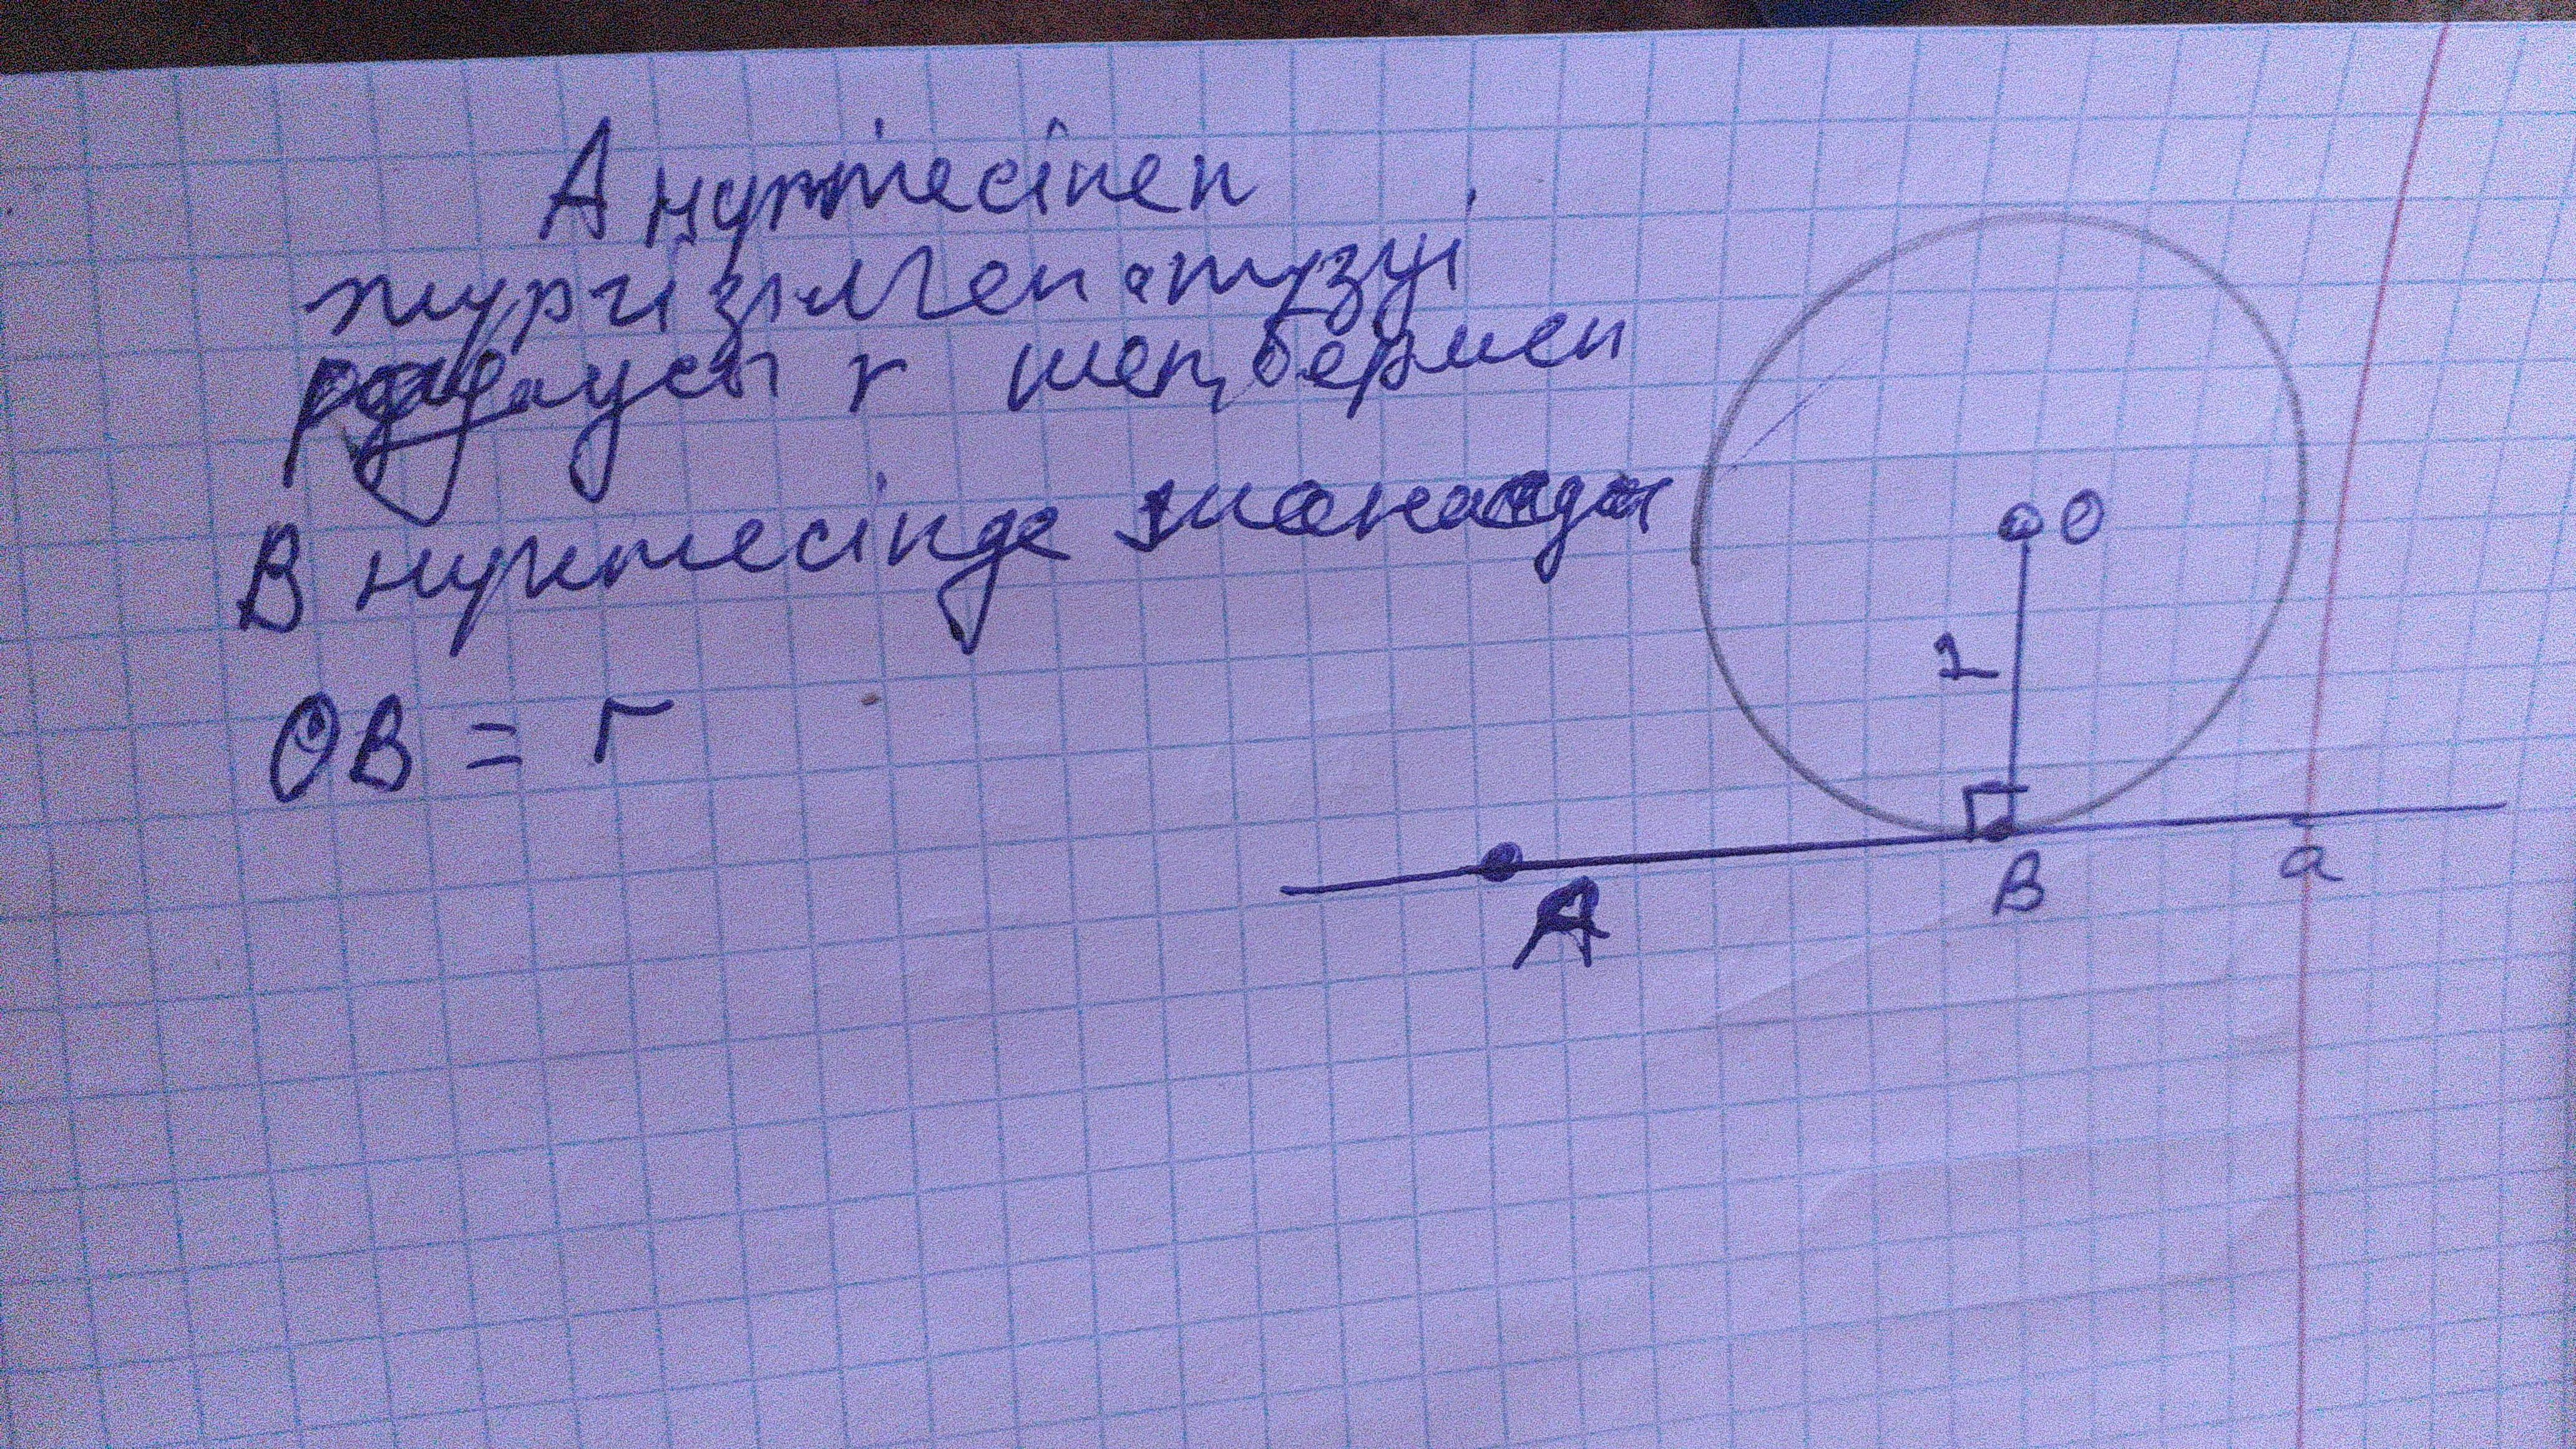 А нүктесінен
жүргізілген а түзуі
радиусы r шеңбермен
В нүктесінде жанасады
OB = r
O
1
B
a
A